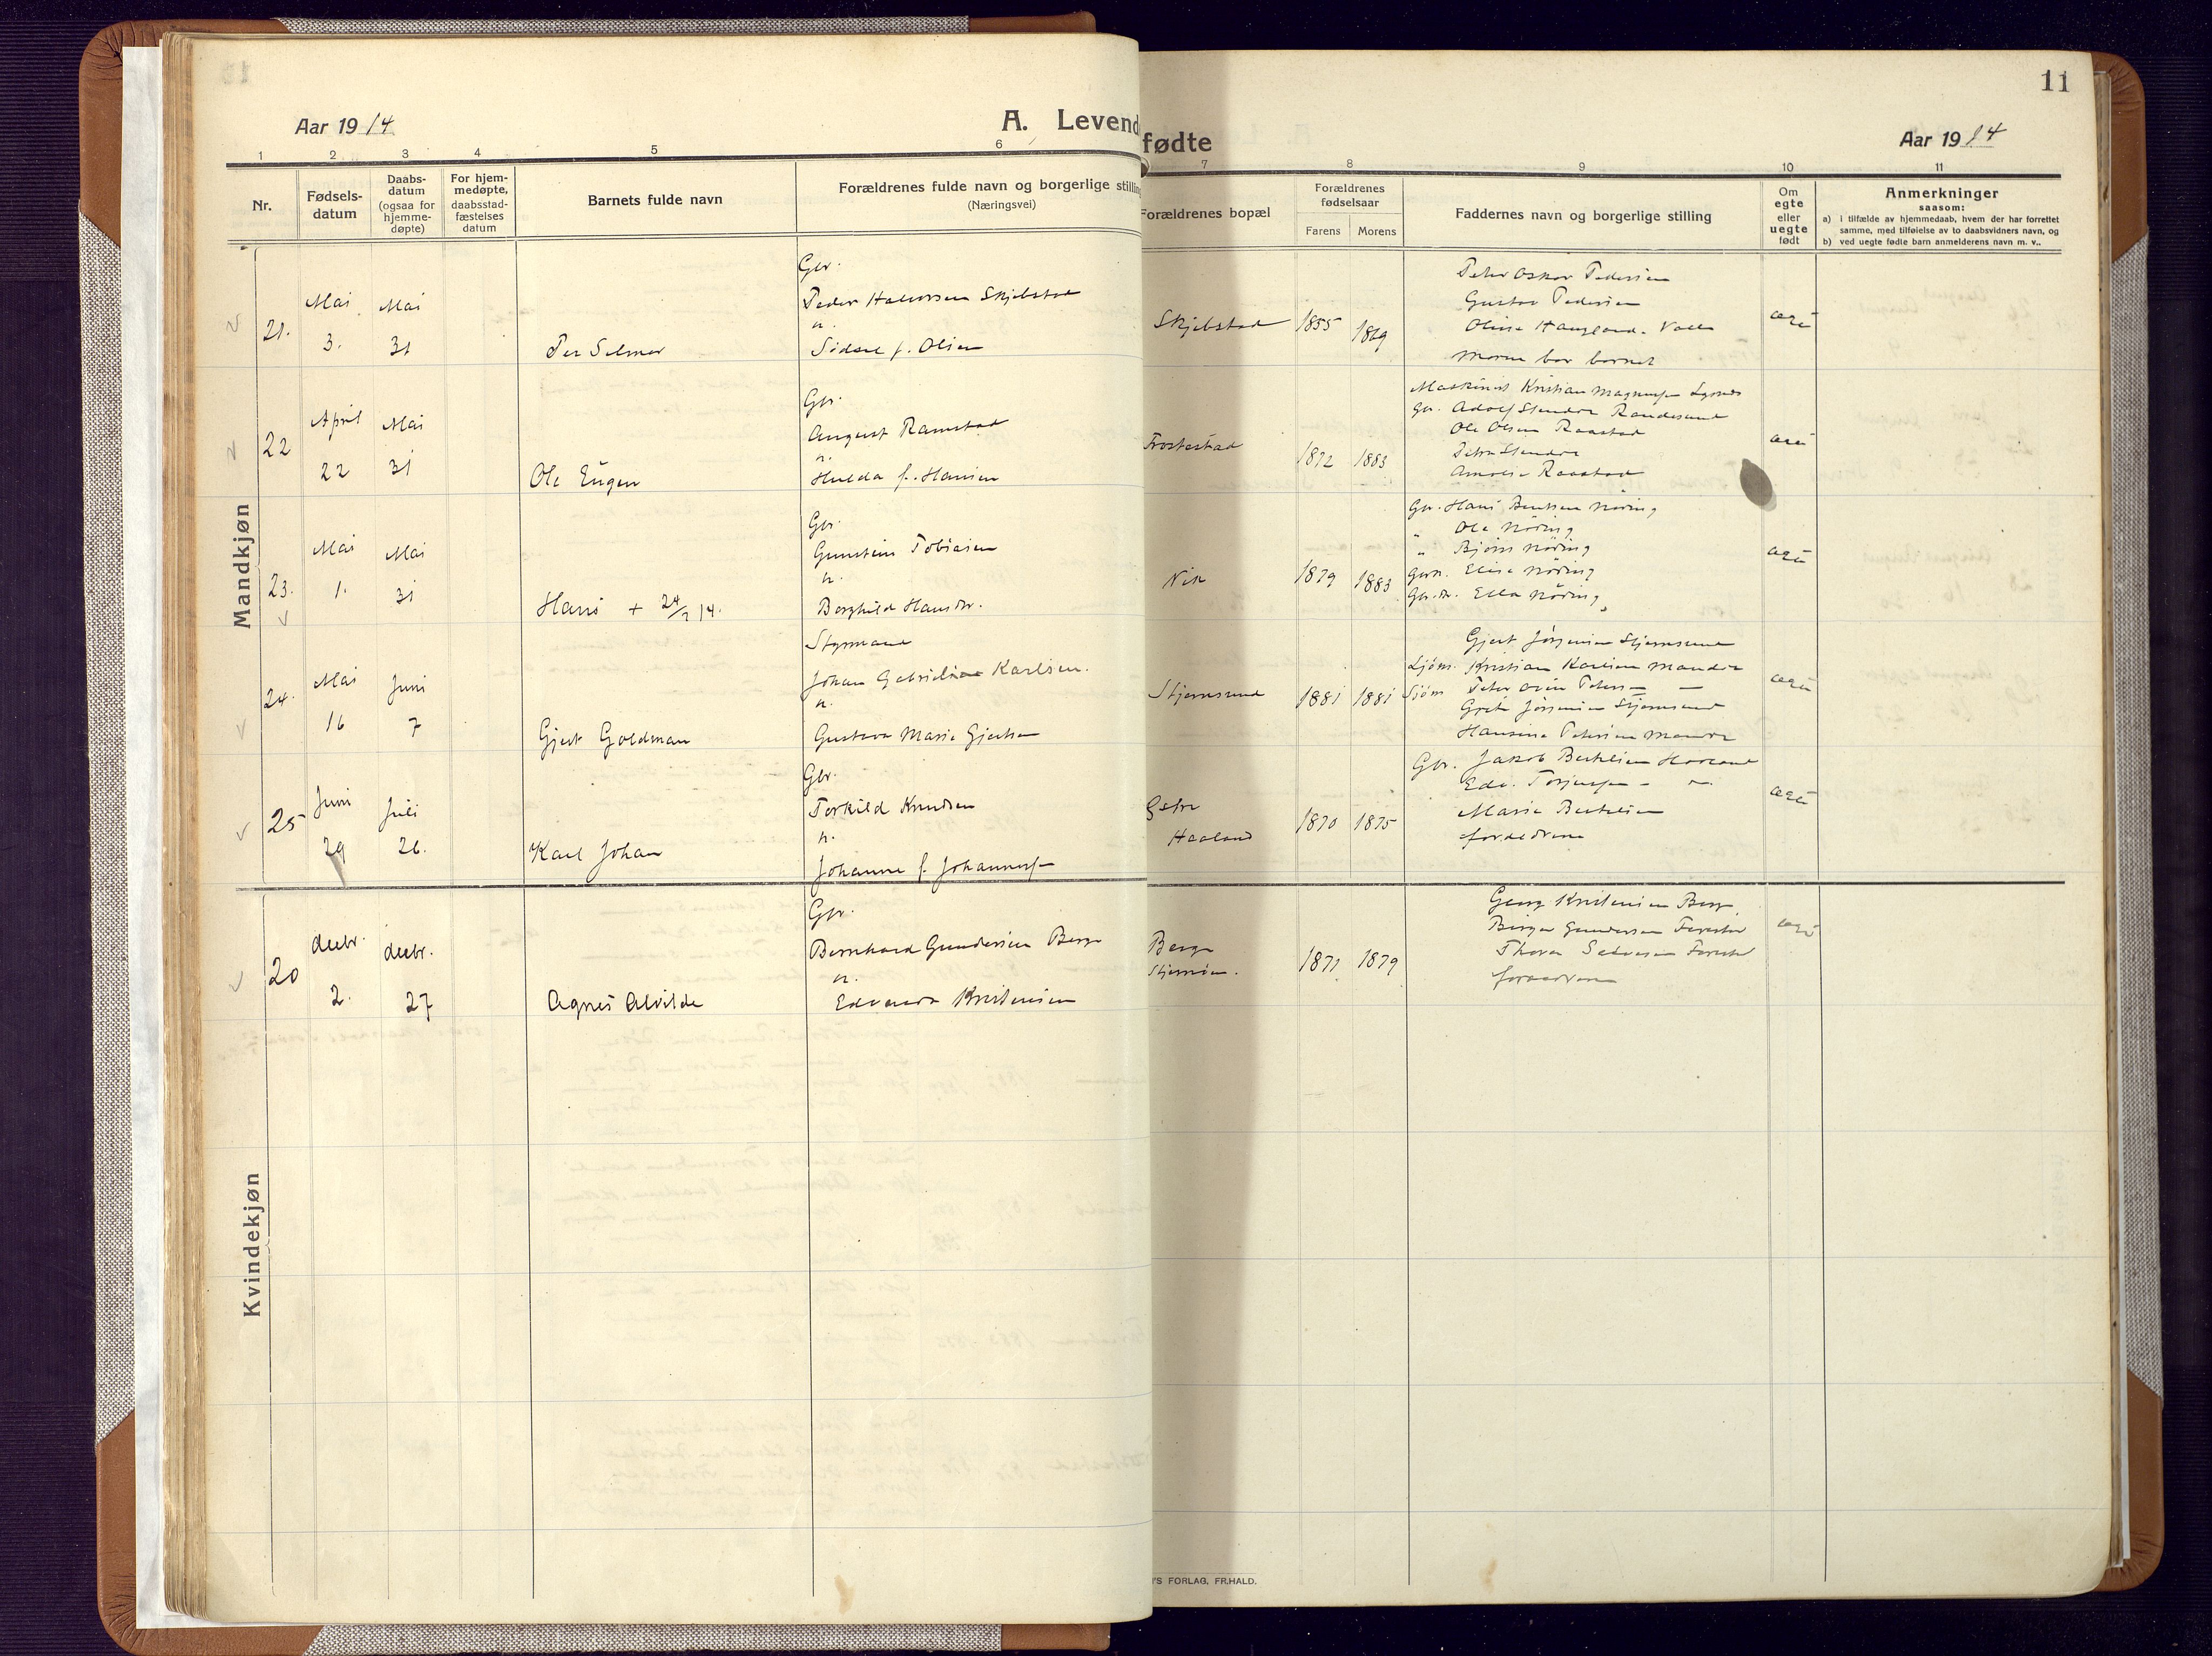 11
Aar 1914
A. Levend
fødte
Aar 1914
1 2 3 4 5 6 7 8 9 10 11
Nr.
Fødsels-
datum
Daabs-
datum
(ogsaa for
hjemme-
døpte)
For hjem-
medøpte,
daabsstad-
fæstelses
datum
Barnets fulde navn
Forældrenes fulde navn og borgerlige stilling
(Næringsvei)
Forældrenes bopæl
Forældrenes
fødselsaar
Farens Morens
Faddernes navn og borgerlige stilling
Om
egte
eller
uegte
født
Anmerkninger
saasom:
a) i tilfælde av hjemmedaab, hvem der har forrettet
samme, med tilføielse av to daabsvidners navn, og
b) ved uegte fødte barn anmelderens navn m. v..
Mandkjøn
21.
Mai
3.
Mai
31
Per Selmer
Gbr.
Peder Halvorsen Skjelstad
n.
f. Olsen
Skjebstad
1855 1869
Peter Oskar Pedersen
Gustav Pedersen
Valle
Moren bar barnet
egte
22
April
22
Mai
31
Ole Eugen
Gbr.
August Ramstad
n.
Hulda f. Hansen
Trostestad
1872 1883
Maskinist Kristian
Gbr. Adolf Randesund
Ole Olsen Raastad
Raastad
egte
23.
Mai
1.
Mai
31
Hans + 24/7 14.
Gbr.
Gunstein Tobiasen
n.
Borghild Hansdr.
1879 1883
Gbr. Hans Nøring
" Ole Nøring
" Bjørn Nøring
Elise Nøring
Ella Nøring
egte
24.
Mai
16
Juni
7
Gjert Goldman
Styrmand
Johan Gabriel Karlsen.
n.
Gustava Marie Gjertsen
Stjernsund
1881 1881
Gjert Jørgensen Stjernsund
Sjøm. Kristian Karlsen Mandal
Sjøm. Peter Petersen —
Jørgensen Stjernsund
Hansine Petersen Mandal
egte
25
Juni
29
Juli
26.
Karl Johan
Gbr.
Torkild Knudsen
n.
Johanne f. Johannesen
Haaland
1870 1875
Gbr. Jakob Haaland
Edv. Torjusen - " -
Marie
forældrene
egte
Kvindekjøn
20
decbr.
2.
decbr.
27
Agnes Alvilde
Gbr.
Bernhard Gundersen Berge
n.
Edvarda Kristensen
Berge
1871 1879
Georg Kristensen Berge
Birger Gundersen
forældrene
egte
'S FORLAG, FR.HALD.